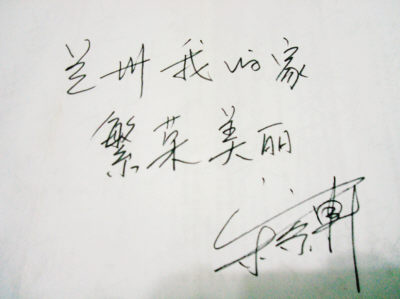 兰州我的家
繁荣美丽